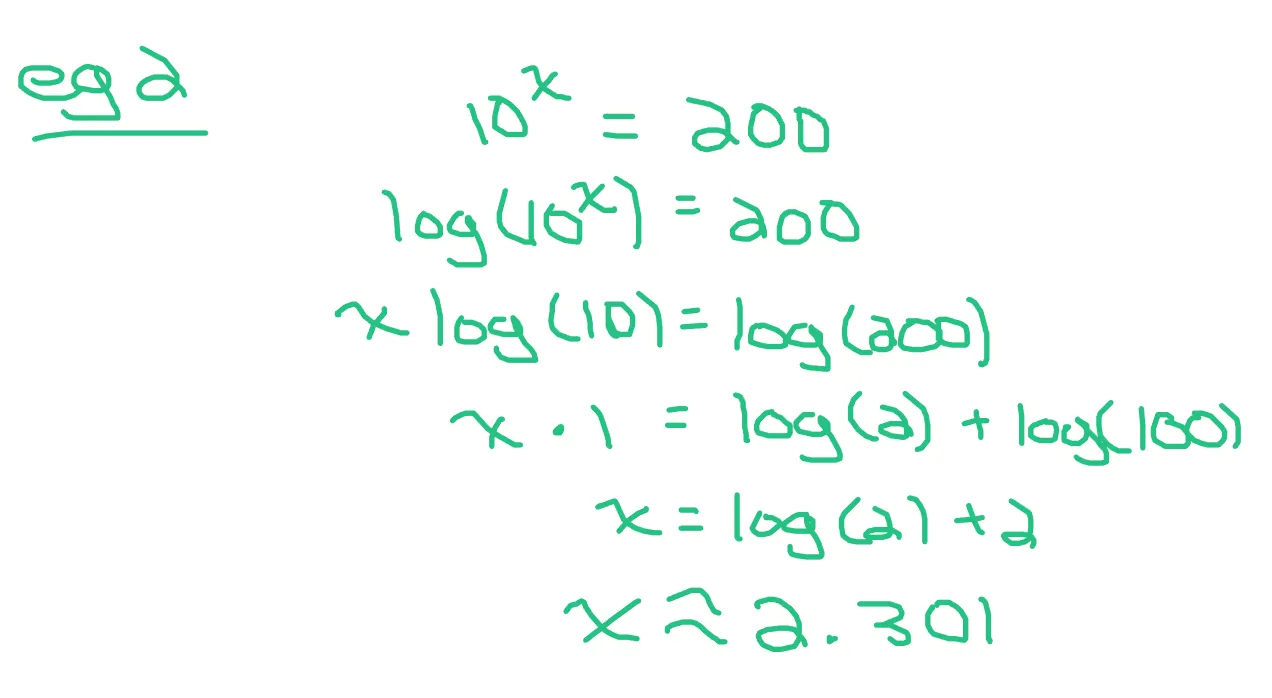 eg 2
10^x = 200
log(10^x) = 200
x log(10) = log(200)
x · 1 = log(2) + log(100)
x = log(2) + 2
x ≈ 2.301